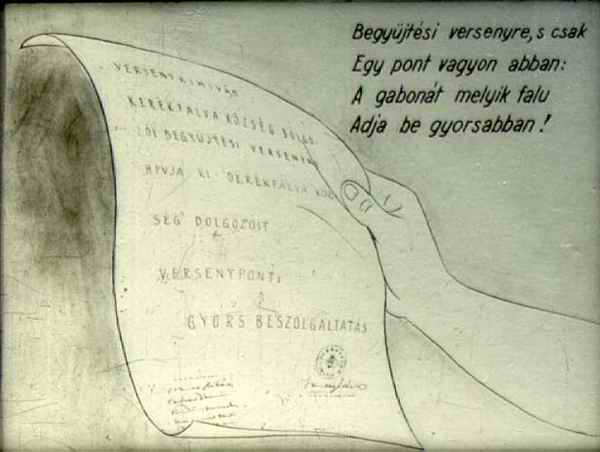 Begyüjtési versenyre, s csak
Egy pont vagyon abban:
A gabonát melyik falu
Adja be gyorsabban!
VERSENYKIHIVÁS
KERÉKFALVA KÖZSÉG DOLGO
ZÓI BEGYÜJTÉSI VERSENYRE
HIVJA KI DERÉKFALVA KÖZ
SÉG DOLGOZÓIT
VERSENYPONT:
GYORS BESZOLGÁLTATÁS